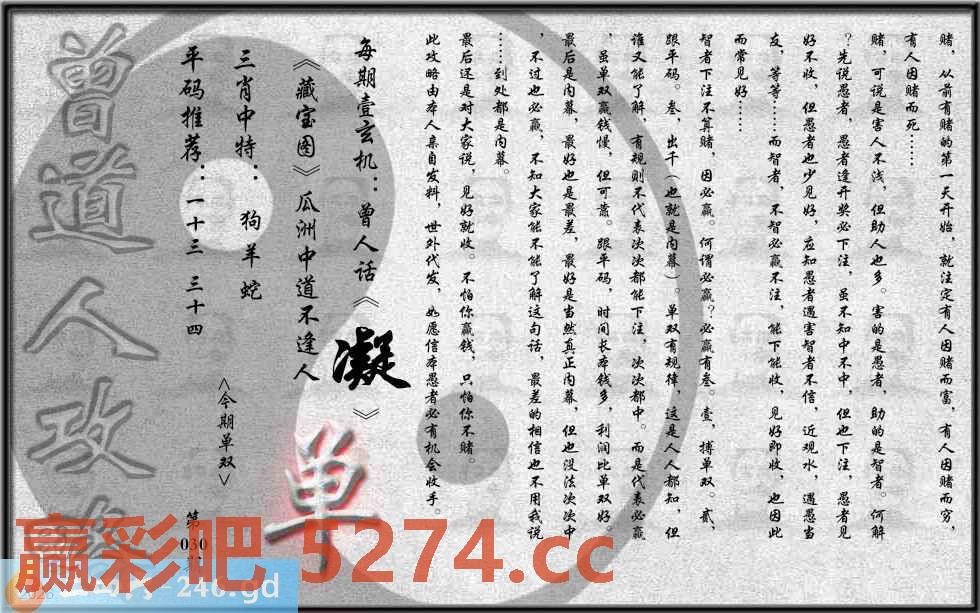 赌，从前有赌的第一天开始，就注定有人因赌而富，有人因赌而穷，
有人因赌而死……
赌，可说是害人不浅，但助人也多。害的是愚者，助的是智者。何解
？先说愚者，愚者逢开奖必下注，虽不知中不中，但也下注，愚者见
好不收，但愚者也少见好，应知愚者遇害智者不信，近观水，遇愚当
友，等等……而智者，不智必赢不注，能下能收，见好即收，也因此
而常见好……
智者下注不算赌，因必赢。何谓必赢？必赢有叁。壹，搏单双。贰，
跟平码。叁，出千（也就是内幕）。单双有规律，这是人人都知，但
谁又能了解，有规则不代表次次都能下注，次次都中。而是代表必赢
，虽单双赢钱慢，但可靠。跟平码，时间长本钱多，利润比单双好。
最后是内幕，最好也是最差，最好是当然真正内幕，但也没法次次中
，不过也必赢，不知大家能不能了解这句话，最差的相信也不用我说
……到处都是内幕。
最后还是对大家说，见好就收。不怕你赢钱，只怕你不赌。
此攻略由本人亲自发料，世外代发，如愿信本愚者必有机会收手。
每期壹玄机：曾人话《凝》
《藏宝图》瓜洲中道不逢人
三肖中特：狗羊蛇
平码推荐：一十三 三十四
<今期单双>
单
第030期
曾道人攻略
赢彩吧 5274.cc
246.gd